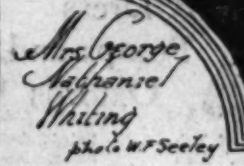 Mrs. George
Nathaniel
Whiting
photo W F Seeley